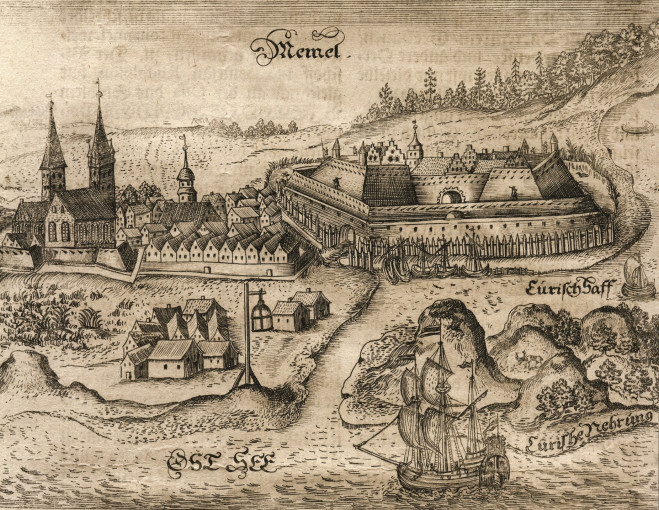 Memel.
Curisch Haff
Curische Nehrung
OST SEE